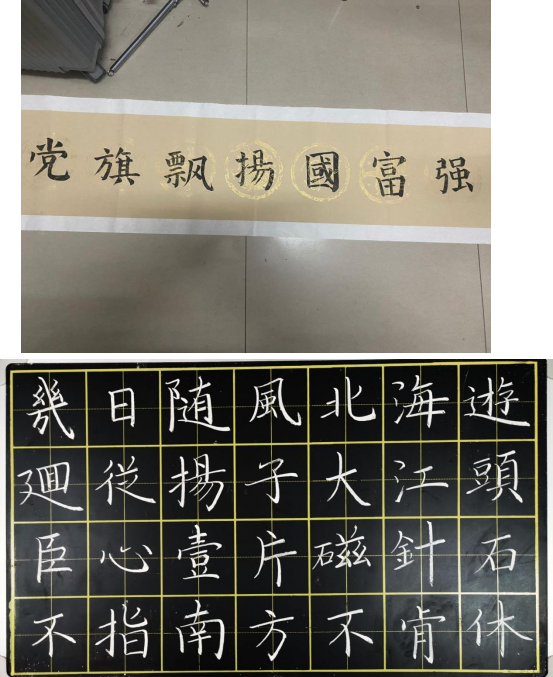 党旗飘揚國富强
幾日随風北海遊
廻従揚子大江頭
臣心壹片磁針石
不指南方不肯休